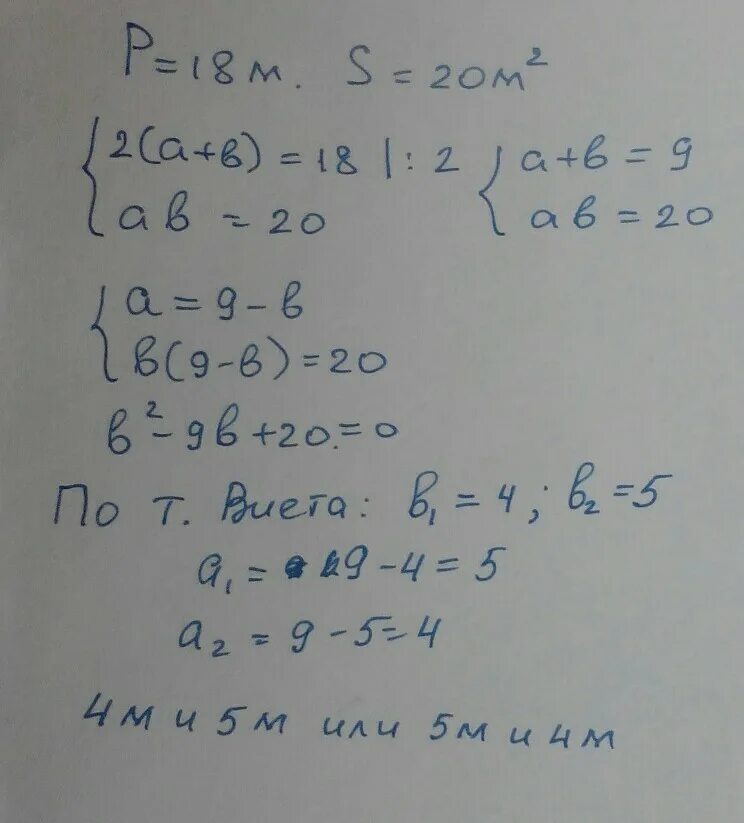 P = 18 м. S = 20 м²
{ 2(a+в) = 18 |: 2 { a+в = 9
aв = 20 aв = 20
{ a = 9 - в
в(9-в) = 20
в² - 9в + 20 = 0
По т. Виета: в₁ = 4; в₂ = 5
a₁ = 9 - 4 = 5
a₂ = 9 - 5 = 4
4 м и 5 м или 5 м и 4 м